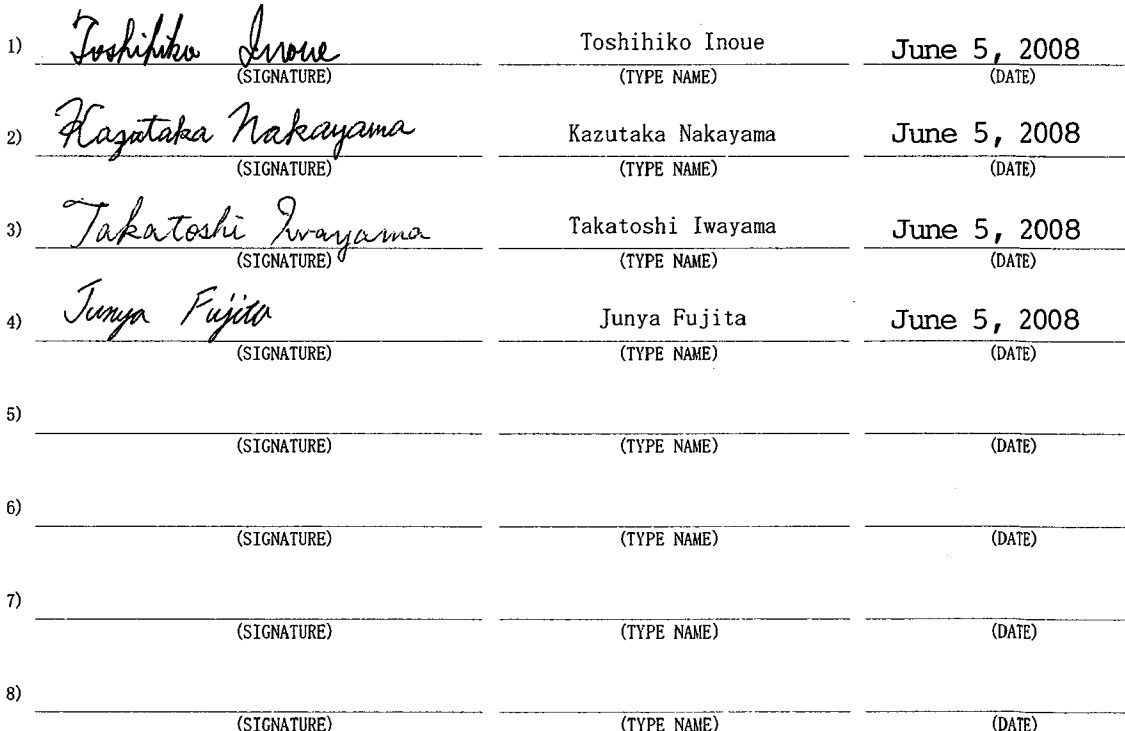 1) Toshihiko Inoue Toshihiko Inoue June 5, 2008
(SIGNATURE) (TYPE NAME) (DATE)
2) Kazutaka Nakayama Kazutaka Nakayama June 5, 2008
(SIGNATURE) (TYPE NAME) (DATE)
3) Takatoshi Iwayama Takatoshi Iwayama June 5, 2008
(SIGNATURE) (TYPE NAME) (DATE)
4) Junya Fujita Junya Fujita June 5, 2008
(SIGNATURE) (TYPE NAME) (DATE)
5)
(SIGNATURE) (TYPE NAME) (DATE)
6)
(SIGNATURE) (TYPE NAME) (DATE)
7)
(SIGNATURE) (TYPE NAME) (DATE)
8)
(SIGNATURE) (TYPE NAME) (DATE)